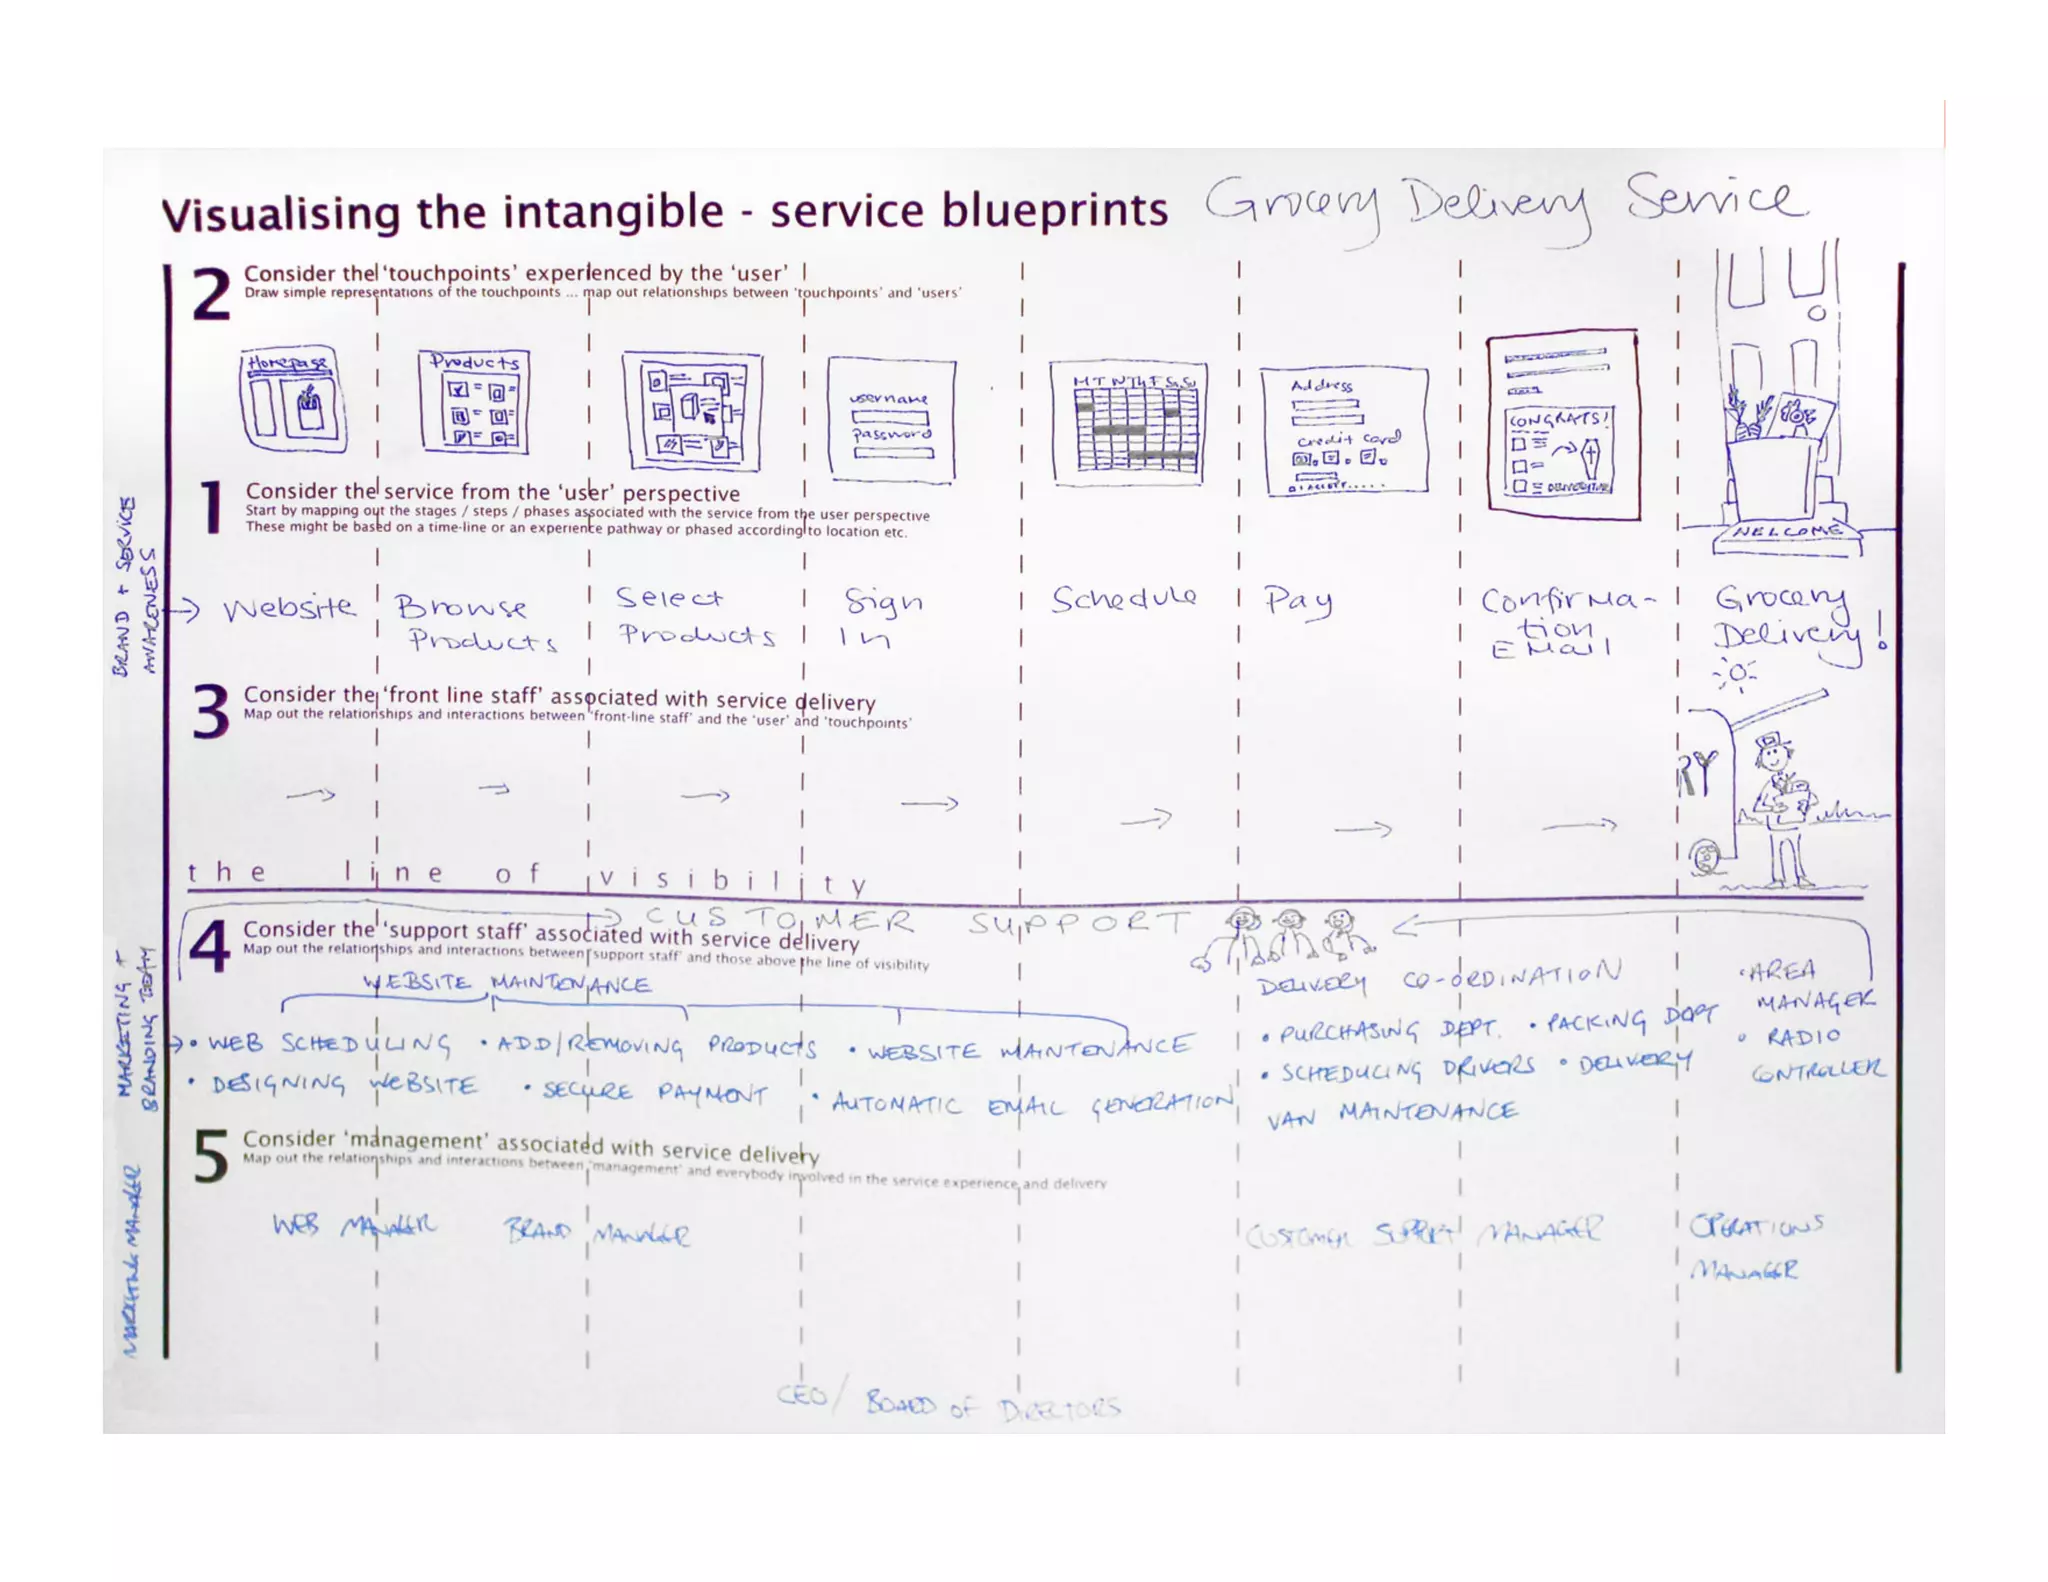 Visualising the intangible - service blueprints Grocery Delivery Service
2 Consider the 'touchpoints' experienced by the 'user'
Draw simple representations of the touchpoints ... map out relationships between 'touchpoints' and 'users'
Homepage
Products
username
password
M T W Th F Sa Su
Address
credit card
I ACCEPT.....
CONGRATS!
WELCOME
1 Consider the service from the 'user' perspective
Start by mapping out the stages / steps / phases associated with the service from the user perspective
These might be based on a time-line or an experience pathway or phased according to location etc.
BRAND + SERVICE
AWARENESS
Website
Browse
Products
Select
Products
Sign
In
Schedule
Pay
Confirma-
tion
EMail
Grocery
Delivery!
3 Consider the 'front line staff' associated with service delivery
Map out the relationships and interactions between 'front-line staff' and the 'user' and 'touchpoints'
RY
the line of visibility
CUSTOMER SUPPORT
4 Consider the 'support staff' associated with service delivery
Map out the relationships and interactions between 'support staff' and those above the line of visibility
MARKETING +
BRANDING TEAM
WEBSITE MAINTENANCE
• WEB SCHEDULING • ADD/REMOVING PRODUCTS • WEBSITE MAINTENANCE
• DESIGNING WEBSITE • SECURE PAYMENT • AUTOMATIC EMAIL GENERATION
DELIVERY CO-ORDINATION
• PURCHASING DEPT. • PACKING DEPT
• SCHEDULING DRIVERS • DELIVERY
VAN MAINTENANCE
• AREA
MANAGER
• RADIO
CONTROLLER
5 Consider 'management' associated with service delivery
Map out the relationships and interactions between 'management' and everybody involved in the service experience and delivery
MARKETING MANAGER
WEB MANAGER
BRAND MANAGER
CUSTOMER SUPPORT MANAGER
OPERATIONS
MANAGER
CEO / BOARD OF DIRECTORS